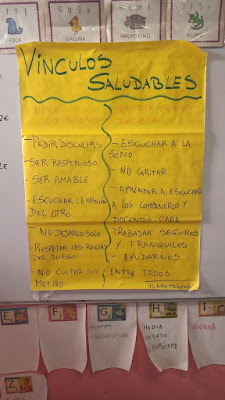 FOCA
GALLINA
HIPOPÓTAMO
IGUANA
VÍNCULOS
SALUDABLES
ENTRE
- PEDIR DISCULPAS
- SER RESPETUOSO
- SER AMABLE
- ESCUCHAR LA OPINIÓN
DEL OTRO.
- NO DEJARLO SOLO
- RESPETAR LAS REGLAS
DEL JUEGO.
- NO CULPAR SIN
MOTIVO
- ESCUCHAR A LA
SEÑO
- NO GRITAR
- APRENDER A ESCUCHAR
A LOS COMPAÑEROS Y
DOCENTES PARA
TRABAJAR SEGUROS
Y TRANQUILOS
- AYUDARNOS
ENTRE TODOS
E
F
G
H
I
Z